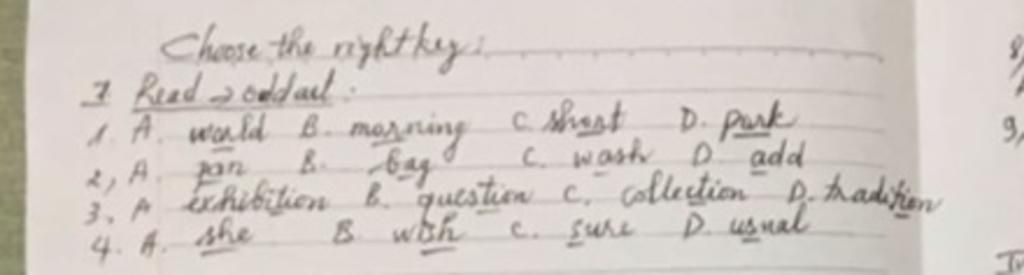 Choose the right key:
I Read → odd out:
1. A. world B. morning C. short D. park
2, A. pan B. bag C. wash D. add
3. A exhibition B. question C. collection D. tradition
4. A. she B. wish C. sure D. usual